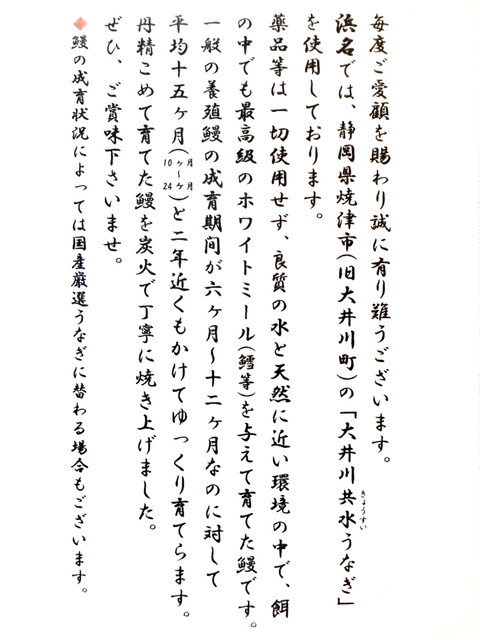 毎度ご愛顧を賜わり誠に有り難うございます。
浜名では、静岡県焼津市(旧大井川町)の「大井川共水うなぎ」
きょうすい
を使用しております。
薬品等は一切使用せず、良質の水と天然に近い環境の中で、餌
の中でも最高級のホワイトミール(鱈等)を与えて育てた鰻です。
一般の養殖鰻の成育期間が六ヶ月〜十二ヶ月なのに対して
平均十五ヶ月(10ヶ月〜24ヶ月)と二年近くもかけてゆっくり育てらます。
丹精こめて育てた鰻を炭火で丁寧に焼き上げました。
ぜひ、ご賞味下さいませ。
◆鰻の成育状況によっては国産厳選うなぎに替わる場合もございます。